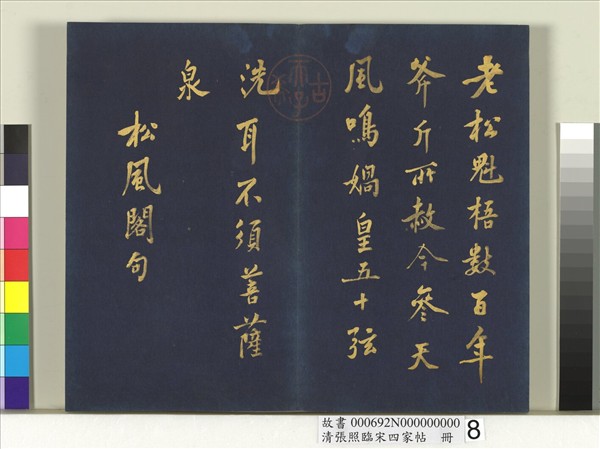 老松魁梧數百年
斧斤所赦今參天
風鳴媧皇五十弦
洗耳不須菩薩
泉
松風閣句
故書 000692N000000000
清張照臨宋四家帖 冊 8